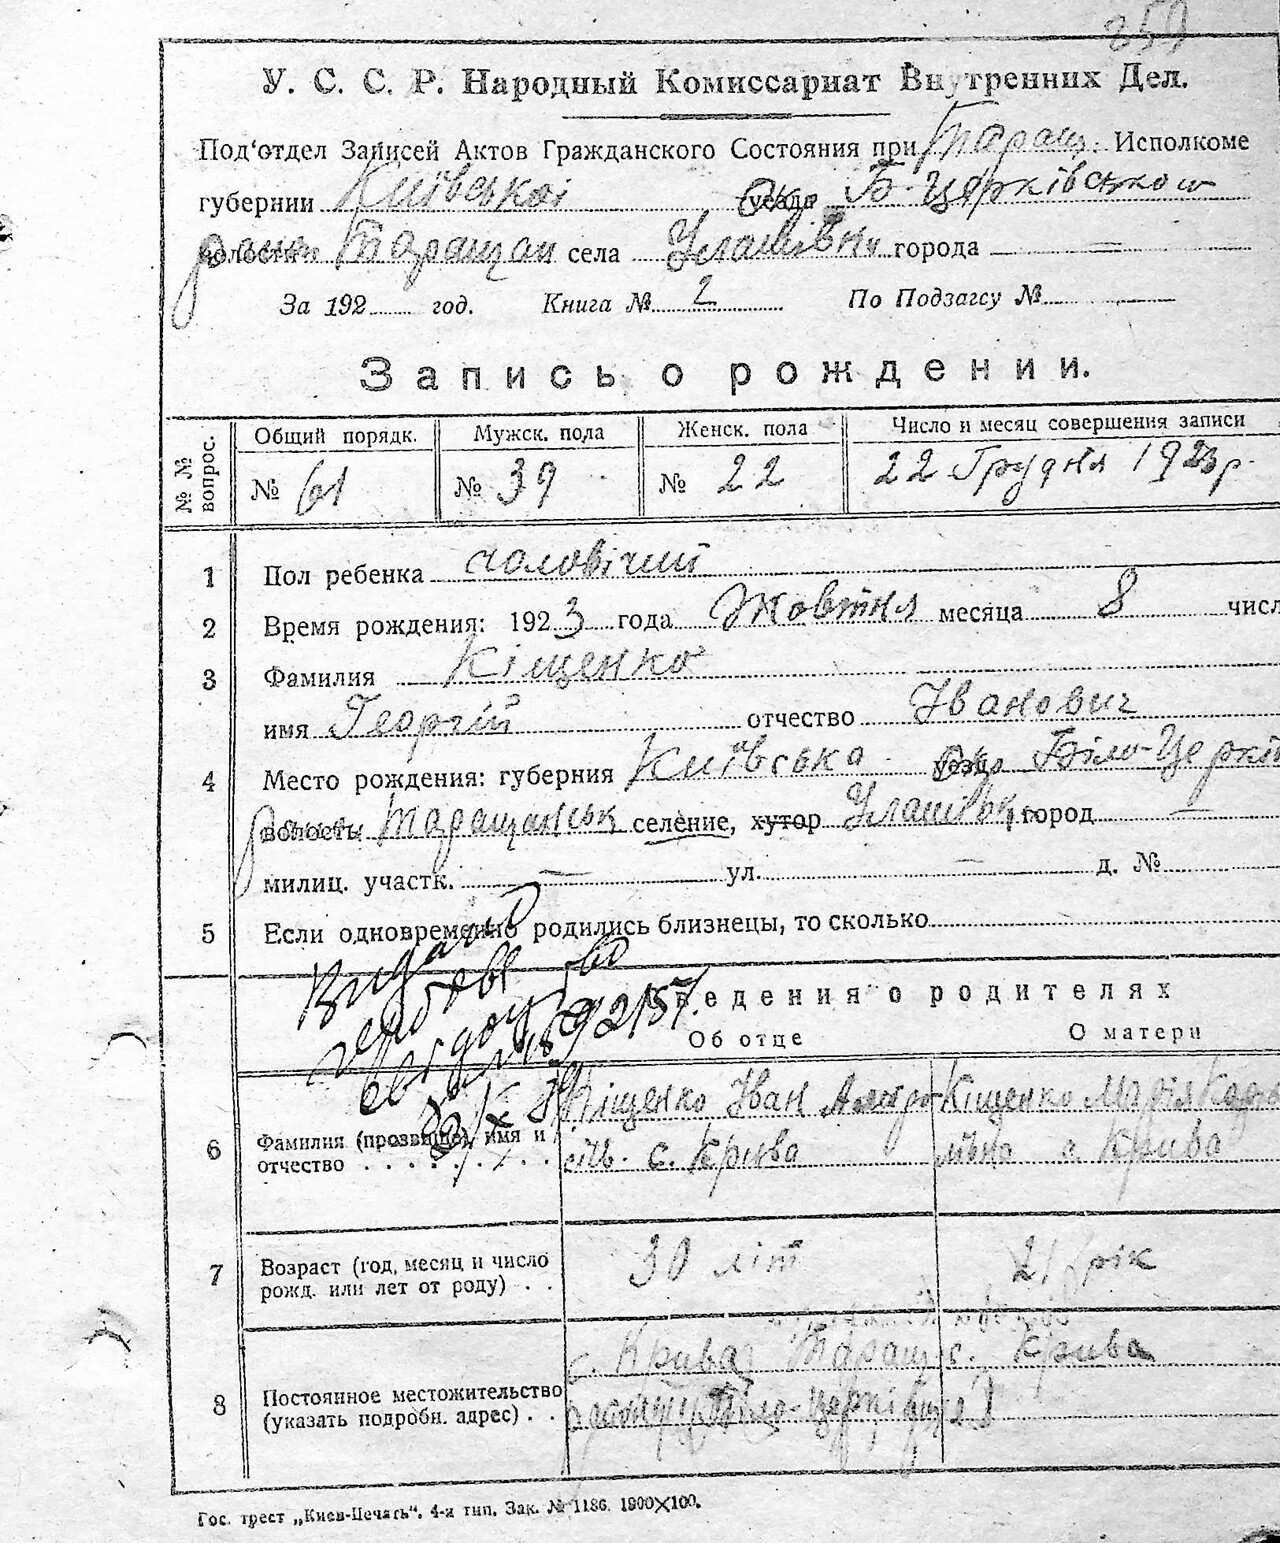 259
У. С. С. Р. Народный Комиссариат Внутренних Дел.
Под'отдел Записей Актов Гражданского Состояния при Таращ. Исполкоме
губернии Київської уезда Окр Б-Церківськои
волости район Таращан села Улашівки города
За 192 год. Книга № 2 По Подзагсу №
Запись о рождении.
№ № вопрос. Общий порядк. Мужск. пола Женск. пола Число и месяц совершения записи
№ 61 № 39 № 22 22 Грудня 1923 р.
1 Пол ребенка чоловічий
2 Время рождения: 1923 года Жовтня месяца 8 числ
3 Фамилия Кіщенко
имя Георгій отчество Іванович
4 Место рождения: губерния Київська уезд Окр Біло-Церків
волость район Таращанськ селение, хутор Улашівк город
милиц. участк. — ул. — д. №
5 Если одновременно родились близнецы, то сколько
Видано
Сведения о родителях
Об отце О матери
6 Фамилия (прозвище), имя и отчество Кіщенко Іван Кіщенко Марія
с. Крива с. Крива
7 Возраст (год, месяц и число рожд. или лет от роду) 30 літ 21 рік
8 Постоянное местожительство (указать подробн. адрес) с. Крива Таращ с. Крива
Біло-Церків
Гос. трест „Киев-Печать“. 4-я тип. Зак. № 1186. 1900×100.